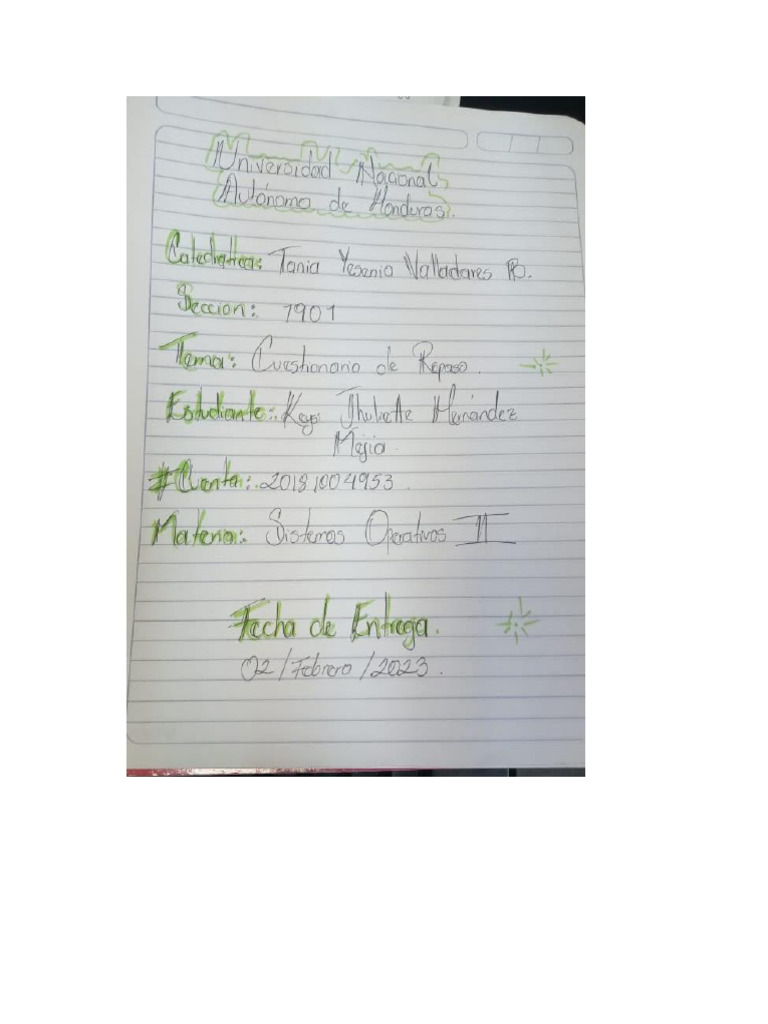 Universidad Nacional
Autónoma de Honduras.
Catedratica: Tania Yesenia Valladares B.
Sección: 1901
Tema: Cuestionario de Repaso.
Estudiante: Jhulette Hernández
Mejia.
#Cuenta: 20181004953
Materia: Sistemas Operativos II
Fecha de Entrega.
02/Febrero/2023.